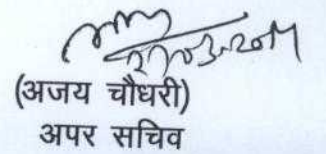 (अजय चौधरी)
अपर सचिव